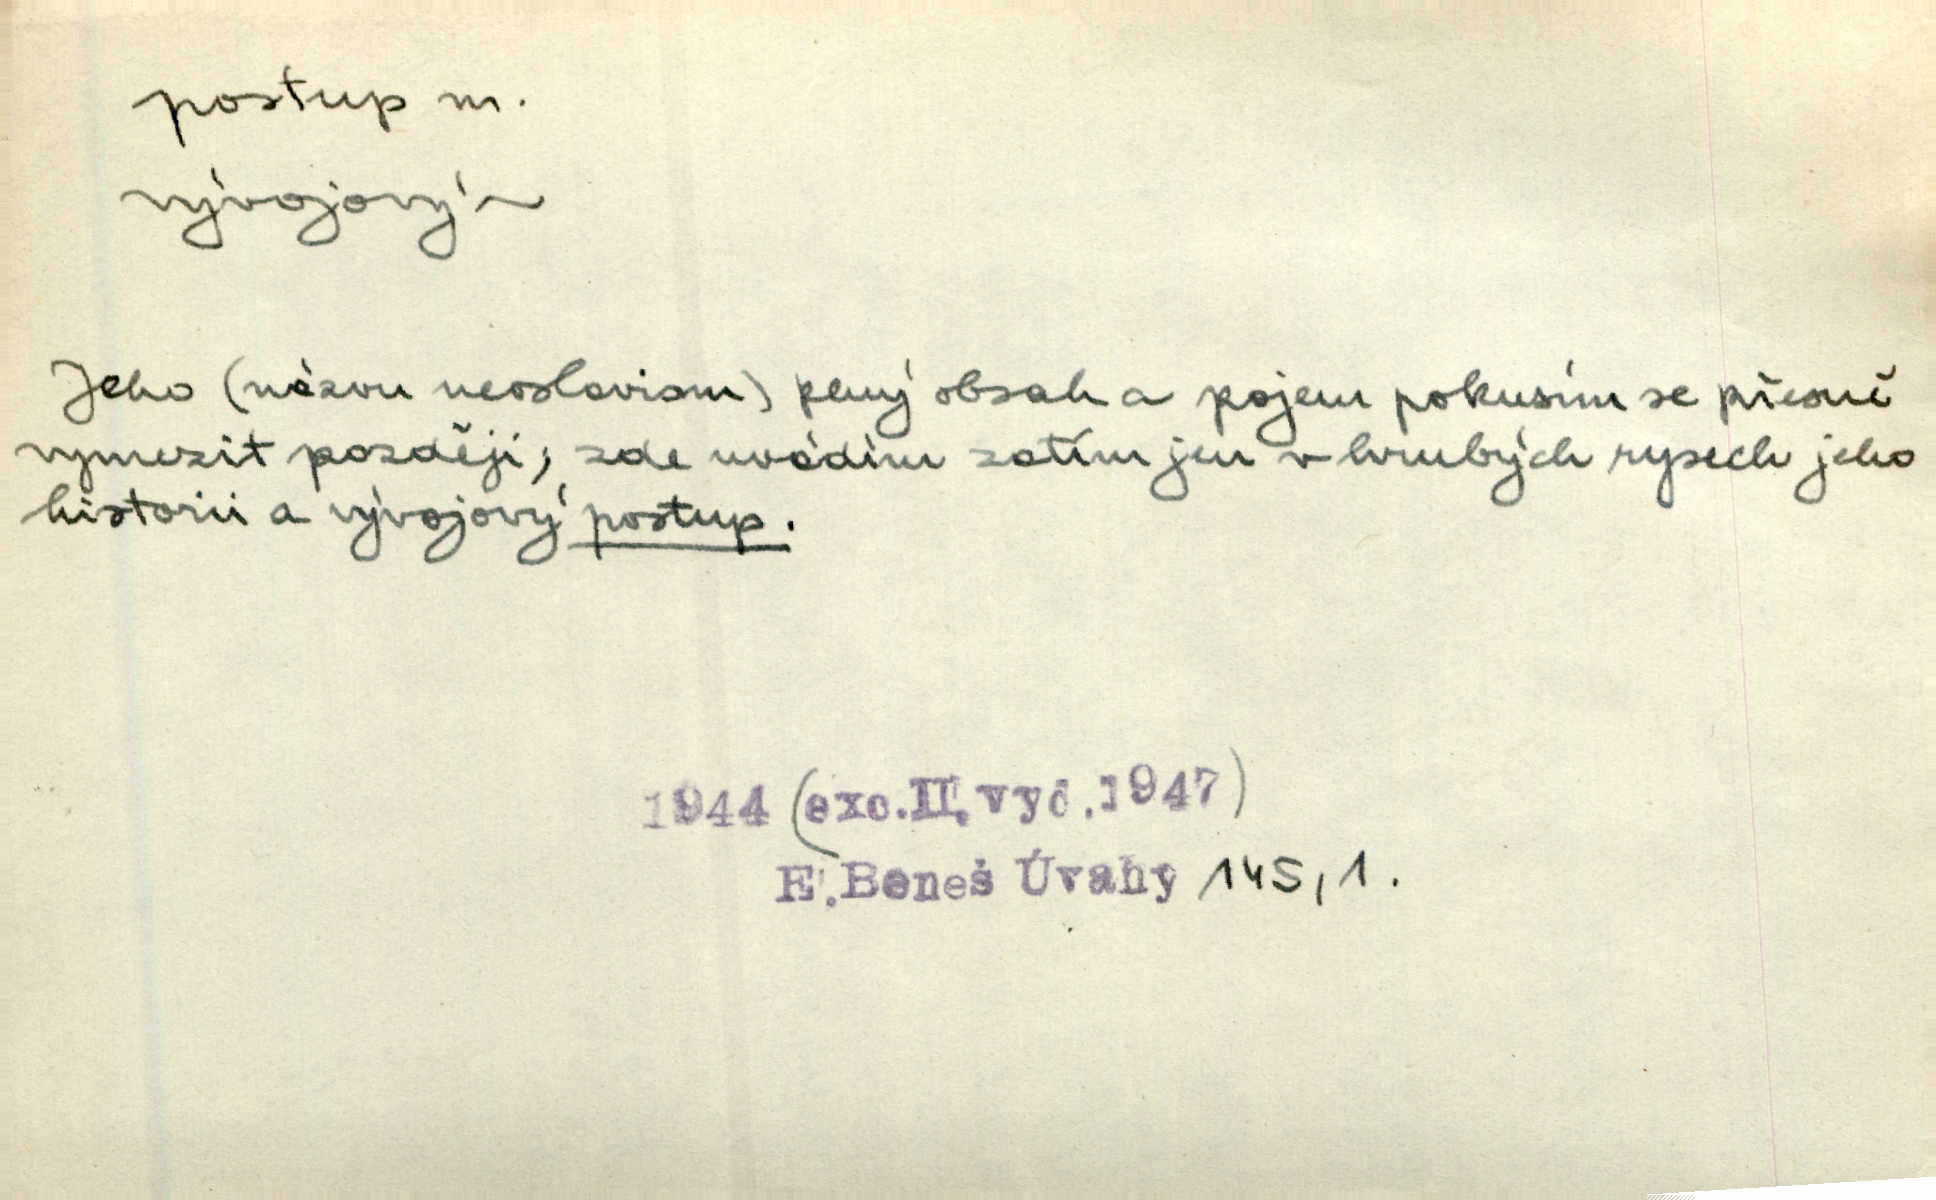 postup m.
vývojový ~
Jeho (názvu neoslavism) plný obsah a pojem pokusím se přesně
vymezit později; zde uvádím zatím jen v hrubých rysech jeho
historii a vývojový postup.
1944 (exc. II. vyd. 1947)
E. Beneš Úvahy 145,1.